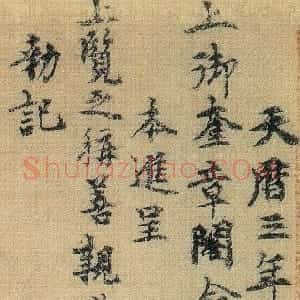 天曆三年
上御奎章閣
本進呈
上覽之稱善親
勅記